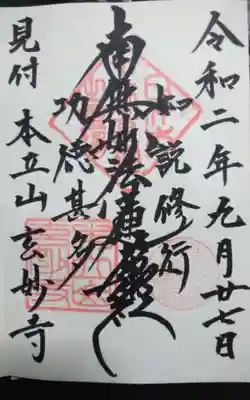 令和二年九月廿七日
如説修行
南無妙法蓮華経
功徳甚多
見付 本立山 玄妙寺